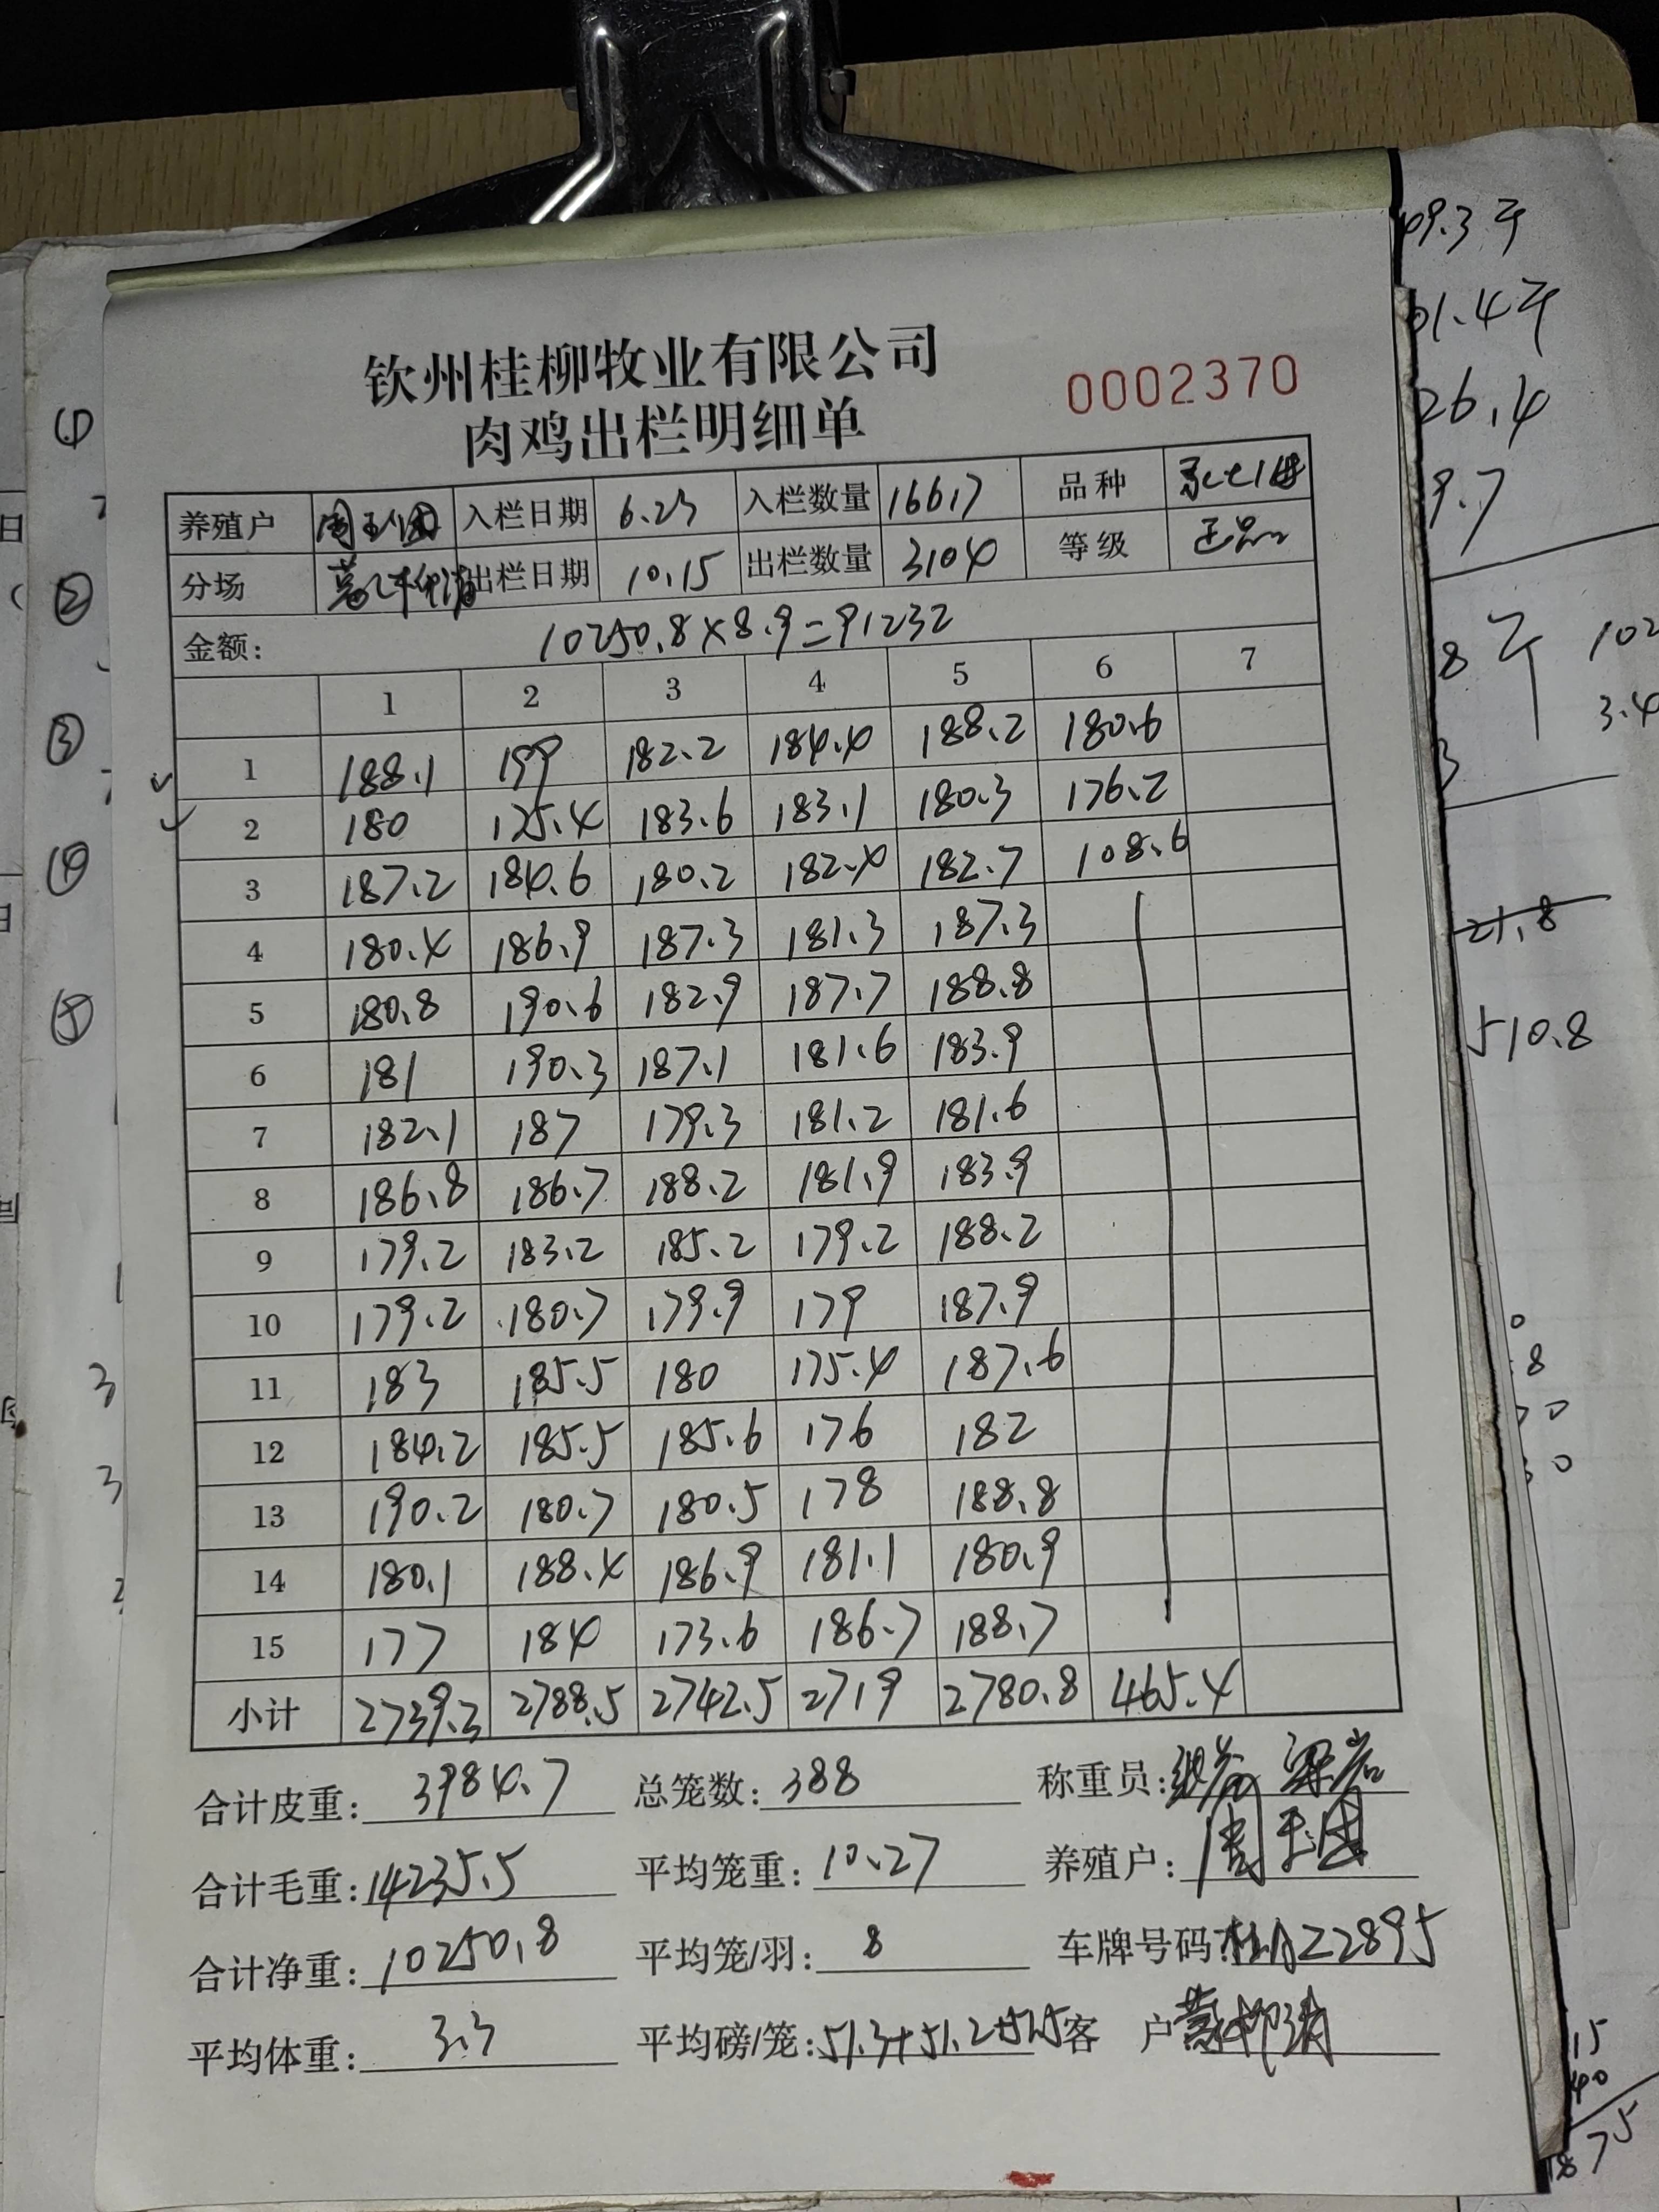 钦州桂柳牧业有限公司
肉鸡出栏明细单
0002370
养殖户 入栏日期 6.23 入栏数量 16617 品种
分场 出栏日期 10.15 出栏数量 3104 等级 正品
金额: 10250.8×8.9=91232
1 2 3 4 5 6 7
1 188.1 199 182.2 184.4 188.2 180.6
2 180 175.4 183.6 183.1 180.3 176.2
3 187.2 184.6 180.2 182.4 182.7 108.6
4 180.4 186.9 187.3 181.3 187.3
5 180.8 190.6 182.9 187.7 188.8
6 181 190.3 187.1 181.6 183.9
7 182.1 187 179.3 181.2 181.6
8 186.8 186.7 188.2 181.9 183.9
9 179.2 183.2 185.2 179.2 188.2
10 179.2 180.7 179.9 179 187.9
11 183 185.5 180 175.4 187.6
12 184.2 185.5 185.6 176 182
13 190.2 180.7 180.5 178 188.8
14 180.1 188.4 186.9 181.1 180.9
15 177 184 173.6 186.7 188.7
小计 2739.3 2788.5 2742.5 2719 2780.8 465.4
合计皮重: 3984.7 总笼数: 388 称重员:
合计毛重: 14235.5 平均笼重: 10.27 养殖户:
合计净重: 10250.8 平均笼/羽: 8 车牌号码: 桂AZ2895
平均体重: 3.3 平均磅/笼: 51.3+51.2+51.5 客 户
09.3斤
01.4斤
26.4
9.7
21.8
510.8
①
②
③
④
⑤